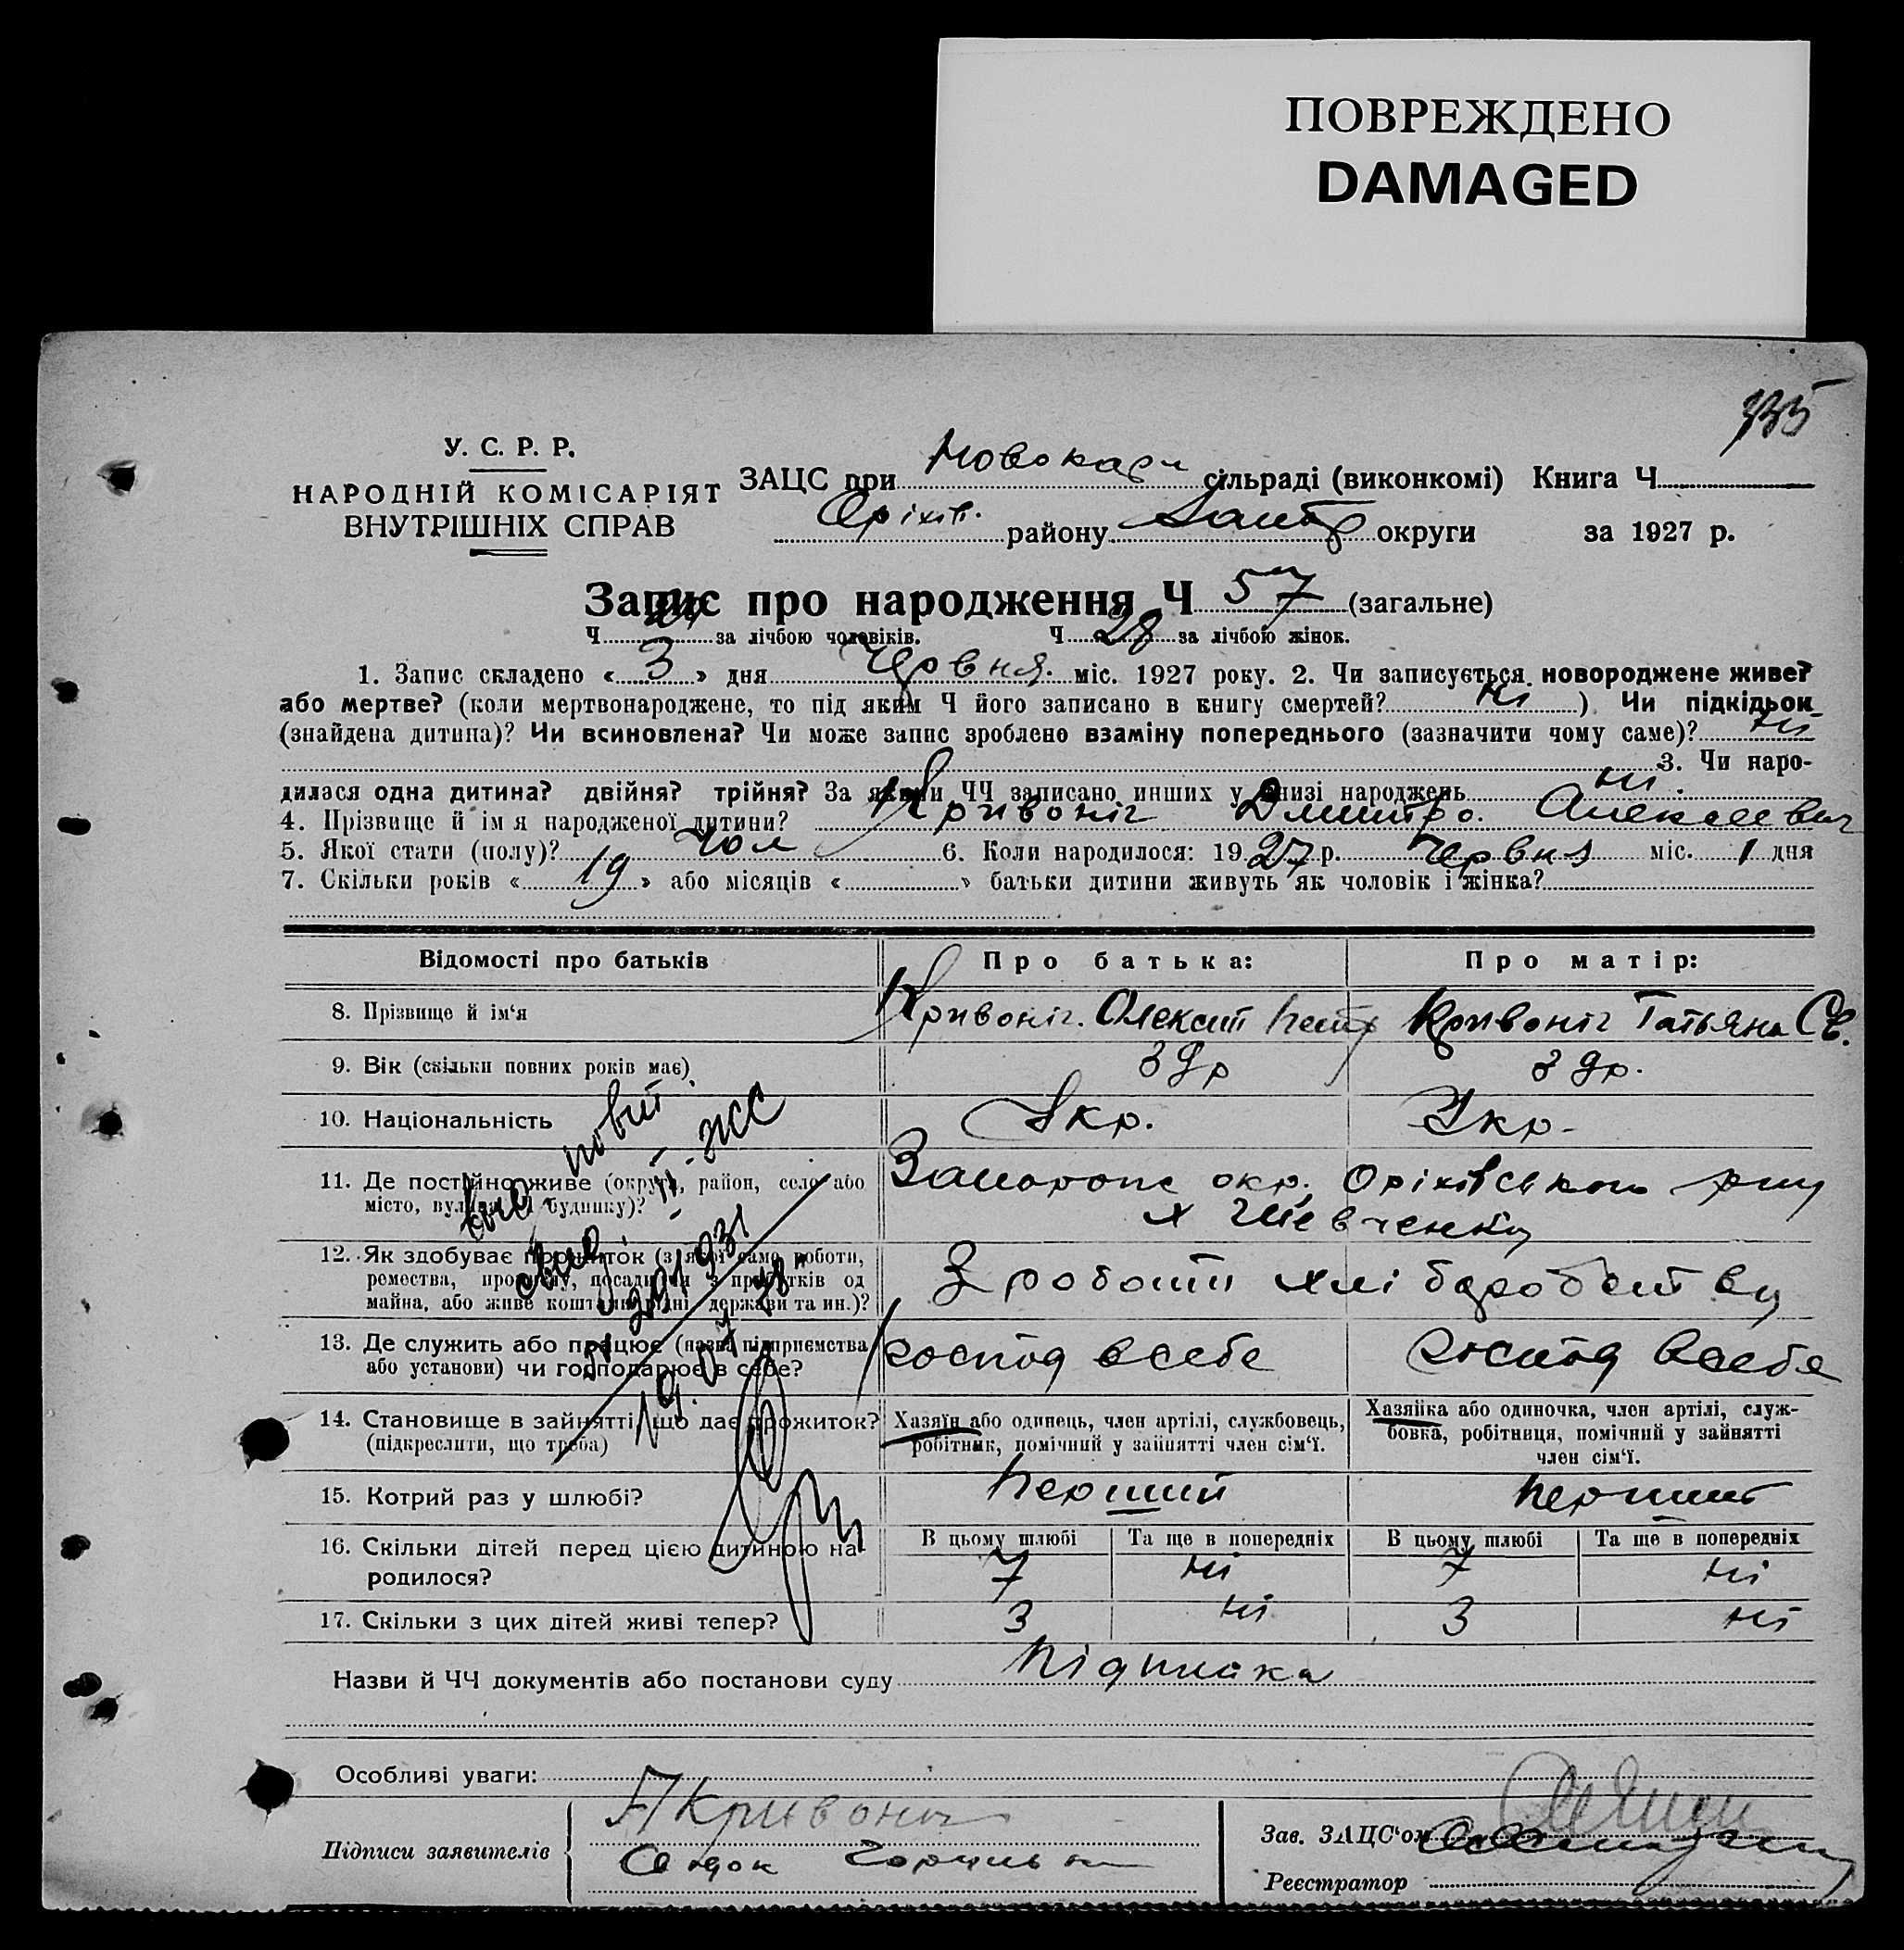 ПОВРЕЖДЕНО
DAMAGED
735
У. С. Р. Р.
НАРОДНІЙ КОМІСАРІЯТ
ВНУТРІШНІХ СПРАВ
ЗАЦС при Новокар сільраді (виконкомі) Книга Ч
Оріхів. району Запор округи за 1927 р.
Запис про народження Ч 57 (загальне)
Ч за лічбою чоловіків. Ч 28 за лічбою жінок.
1. Запис складено « 3 » дня Червня. міс. 1927 року. 2. Чи записується новороджене живе?
або мертве? (коли мертвонароджене, то під яким Ч його записано в книгу смертей? ні ) Чи підкідьок
(знайдена дитина)? Чи всиновлена? Чи може запис зроблено взаміну попереднього (зазначити чому саме)? ні
3. Чи наро-
дилася одна дитина? двійня? трійня? За якими ЧЧ записано инших у книзі народжень ні.
4. Прізвище й ім'я народженої дитини? Кривоніг Дмитро. Алексеевич
5. Якої стати (полу)? Чол 6. Коли народилося: 1927 р. Червня міс. 1 дня
7. Скільки років « 19 » або місяців « » батьки дитини живуть як чоловік і жінка?
Відомості про батьків Про батька: Про матір:
8. Прізвище й ім'я Кривоніг. Олексій Петр Кривоніг Татьяна Св.
9. Вік (скільки повних років має) 39р 39р.
10. Національність Укр. Укр.
11. Де постійно живе (округа, район, село або Запорож окр. Оріхівського р-ну
місто, вулиця й будинку)? х Шевченки
12. Як здобуває прожиток (з якої само роботи,
ремества, промислу, посади чи з прибутків од З роботи хліборобств
майна, або живе коштами рідні, держави та ин.)?
13. Де служить або працює (назва підприємства
або установи) чи господарює в себе? господ в себе господ в себе
14. Становище в зайнятті, що дає прожиток? Хазяїн або одинець, член артілі, службовець, Хазяйка або одиночка, член артілі, служ-
(підкреслити, що треба) робітник, помічний у зайнятті член сім'ї. бовка, робітниця, помічний у зайнятті
член сім'ї.
15. Котрий раз у шлюбі? Перший Перший
16. Скільки дітей перед цією дитиною на- В цьому шлюбі Та ще в попередніх В цьому шлюбі Та ще в попередніх
родилося? 7 ні 7 ні
17. Скільки з цих дітей живі тепер? 3 ні 3 ні
Назви й ЧЧ документів або постанови суду Підписка
Особливі уваги:
Підписи заявителів А Кривоніг
Свідок
Зав. ЗАЦС'ом
Реєстратор